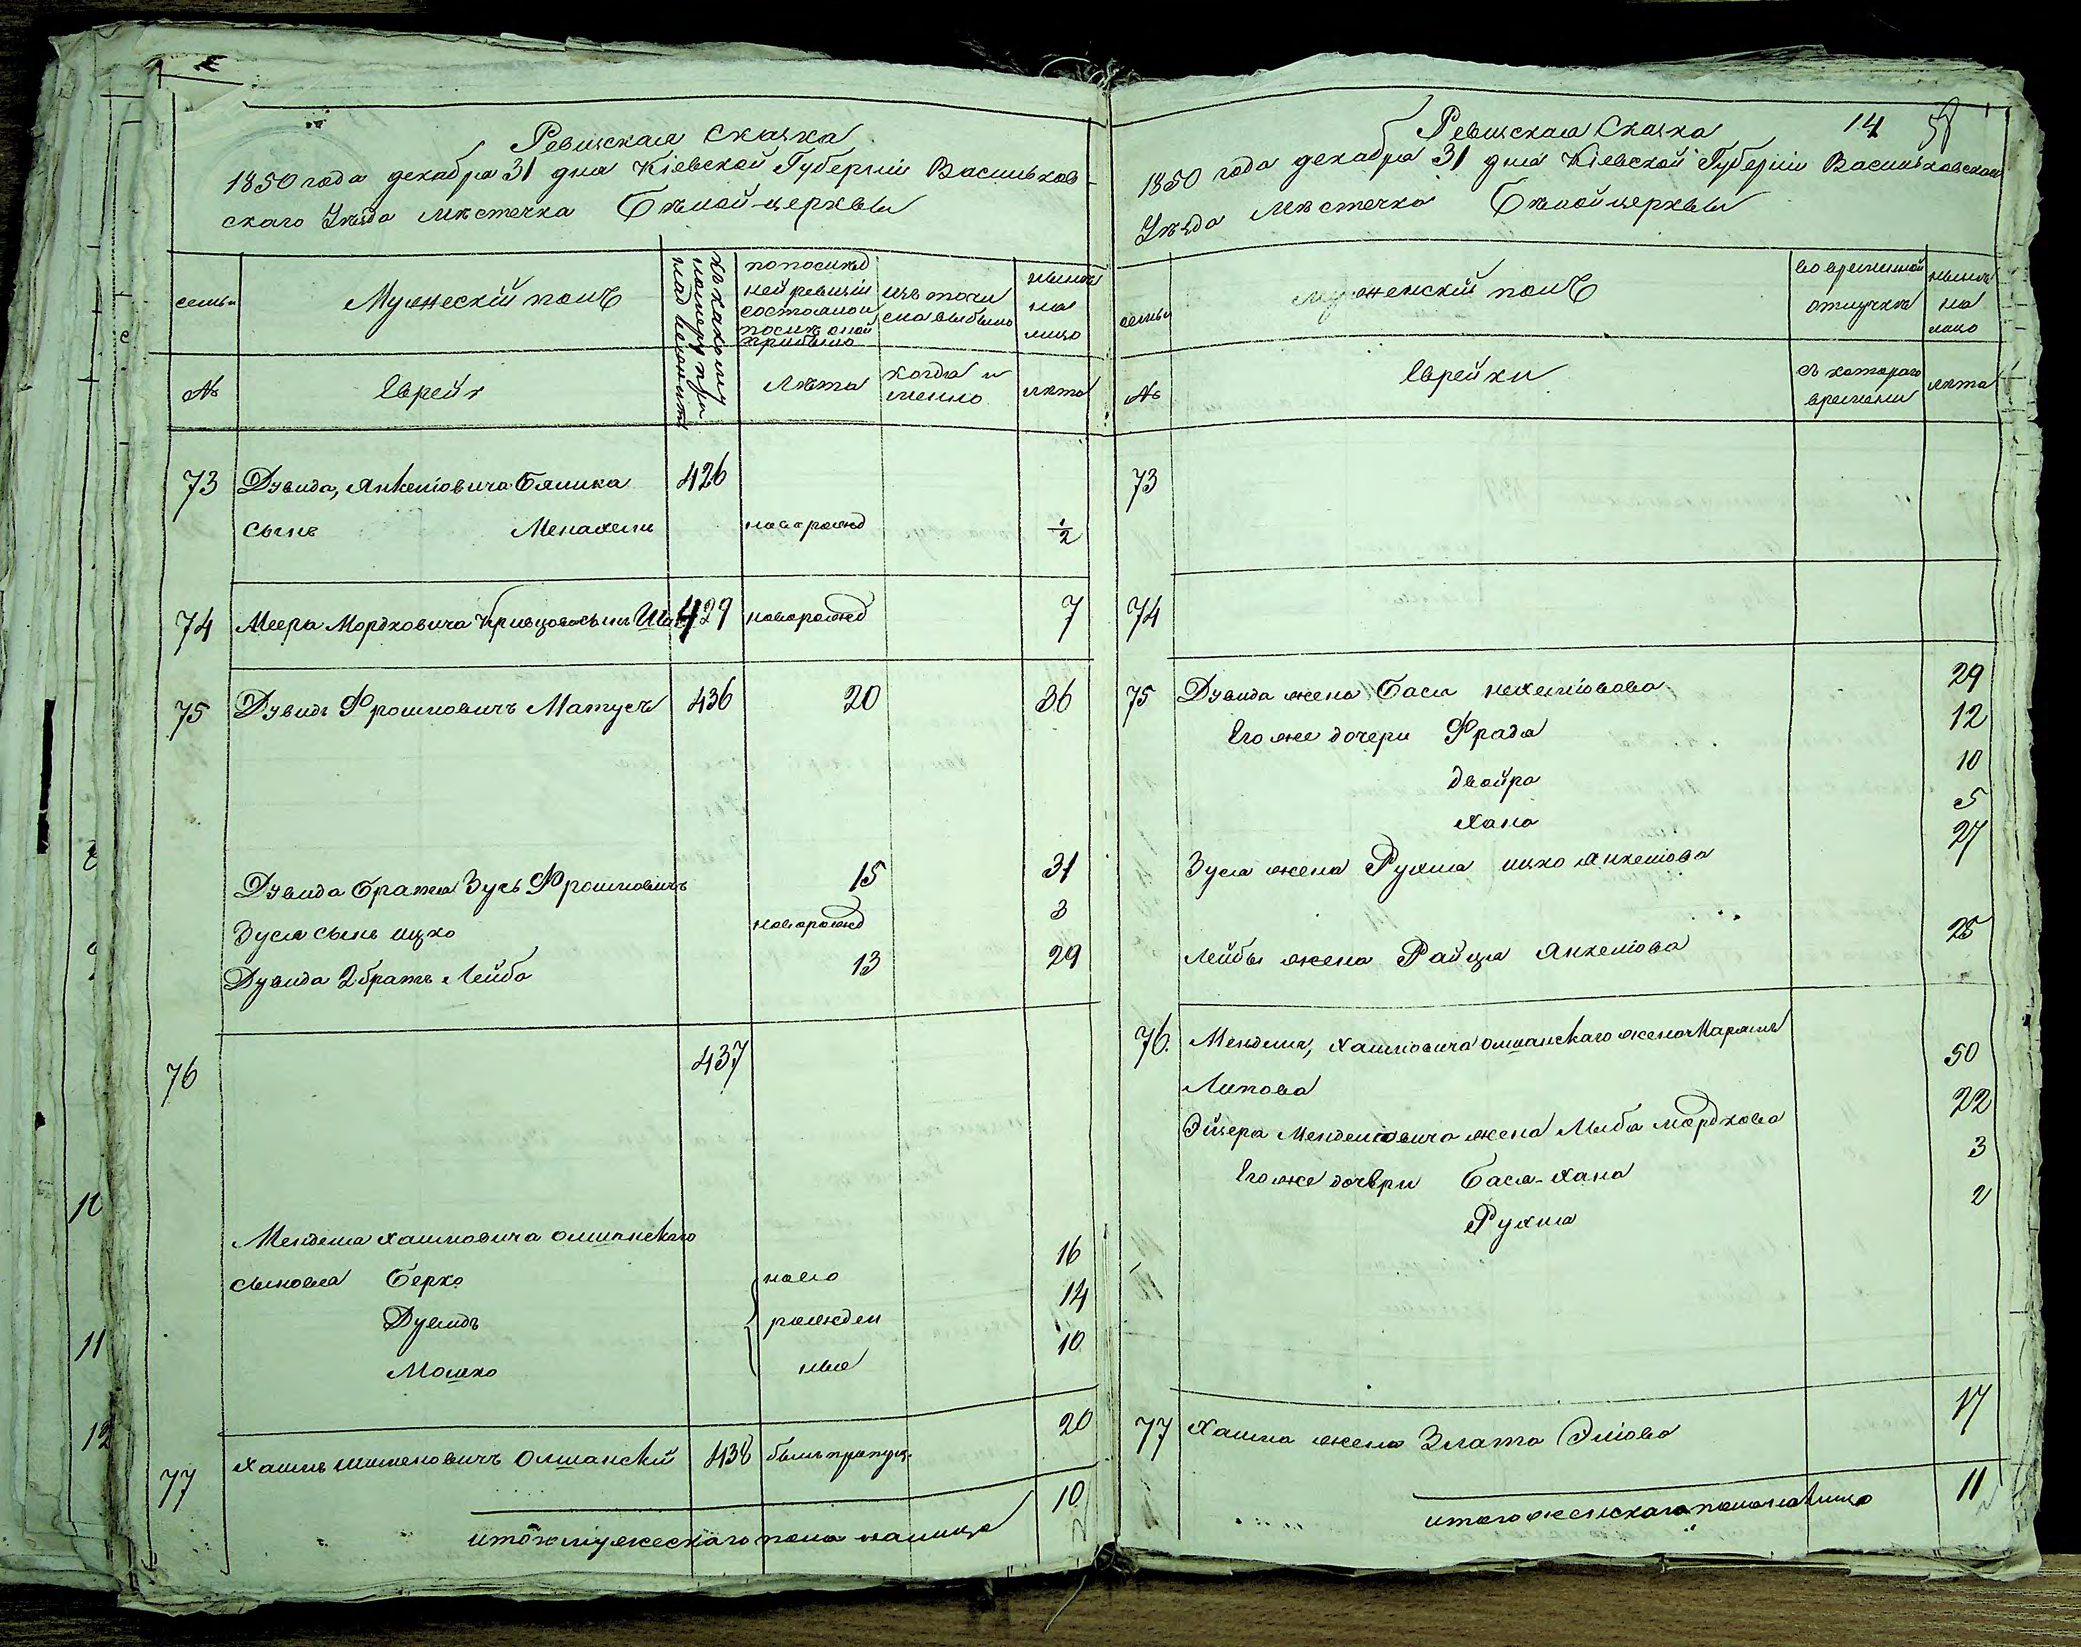 Ревизская Сказка
1850 года декабря 31 дня Кіевской Губерніи Васильков-
скаго Уѣзда Мѣстечка Бѣлой-церквы
семьи
Мужескій полъ
по послѣд
ней ревизіи
состояло и
послѣ оной
прибыло
изъ того чи
сла выбыло
нынѣ
на
лицо
№
Евреи
Лѣта
когда и
менно
лѣта
73 Дувида, Янкеліовича Бялика 426
сынъ Менахемъ новорожд 1/2
74 Меера Мордховича Кривцова сынъ 429 новорожд 7
75 Дувидъ Фроимовичъ Матусъ 436 20 36
Дувида брата Зусь Фроимовичъ 15 31
Зуся сынъ Ицко новорожд 3
Дувида 2 братъ Лейба 13 29
76 437
Менделя Хаимовича Олшанскаго
сыновья Берко ново 16
Дувидъ рожден 14
Мошко ные 10
77 Хаимъ Шименовичъ Олшанскій 438 былъ пропущ. 20
итого мужескаго пола налицо 10
14
Ревизская Сказка
1850 года декабря 31 дня Кіевской Губерніи Васильковскаго
Уѣзда Мѣстечка Бѣлой церквы
семьи
женскій полъ
во временной
отлучкѣ
нынѣ
на
лицо
№
Еврейки
съ котораго
времени
лѣта
73
74
75 Дувида жена Бася Нехеміовова 29
Его же дочери Фрада 12
Двойра 10
Хана 5
Зуся жена Рухля Ицко Янкелова 27
Лейбы жена Райца Янкеліова 25
76. Менделя, Хаимовича Олшанскаго жена Маріямъ
Липова 50
Эйзера Менделіовича жена Либа Мордхова 22
Его же дочери Бася-Хана 3
Рухля 2
77 Хаима жена Злата Эліова 17
итого женскаго пола налицо 11